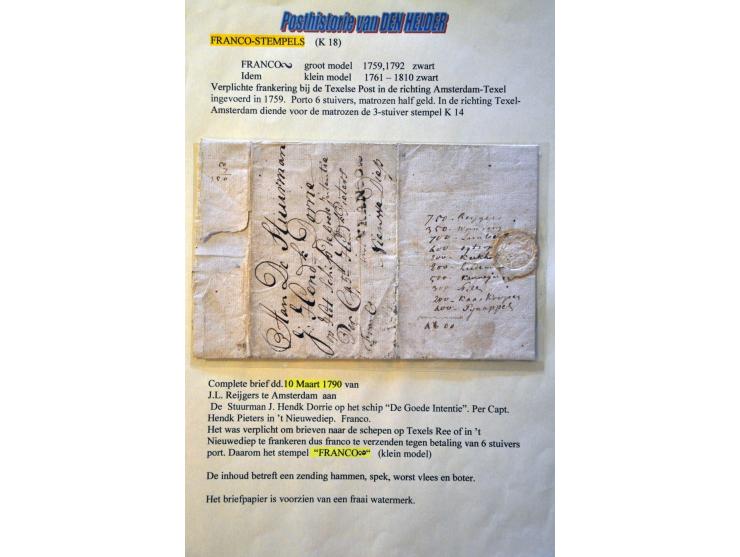 Posthistorie van DEN HELDER
FRANCO-STEMPELS (K 18)
FRANCO∾ groot model 1759,1792 zwart
Idem klein model 1761 – 1810 zwart
Verplichte frankering bij de Texelse Post in de richting Amsterdam-Texel
ingevoerd in 1759. Porto 6 stuivers, matrozen half geld. In de richting Texel-
Amsterdam diende voor de matrozen de 3-stuiver stempel K 14
Aan De Stuurman
J. Hendk Dorrie
op het schip De goede intentie
Per Capt. Hendk Pieters
Franco Nieuwe Diep
FRANCO
750 - Reijgers
350
700
600
300
800
500
300
200
400
Complete brief dd.10 Maart 1790 van
J.L. Reijgers te Amsterdam aan
De Stuurman J. Hendk Dorrie op het schip “De Goede Intentie”. Per Capt.
Hendk Pieters in ’t Nieuwediep. Franco.
Het was verplicht om brieven naar de schepen op Texels Ree of in ’t
Nieuwediep te frankeren dus franco te verzenden tegen betaling van 6 stuivers
port. Daarom het stempel “FRANCO∾“ (klein model)
De inhoud betreft een zending hammen, spek, worst vlees en boter.
Het briefpapier is voorzien van een fraai watermerk.